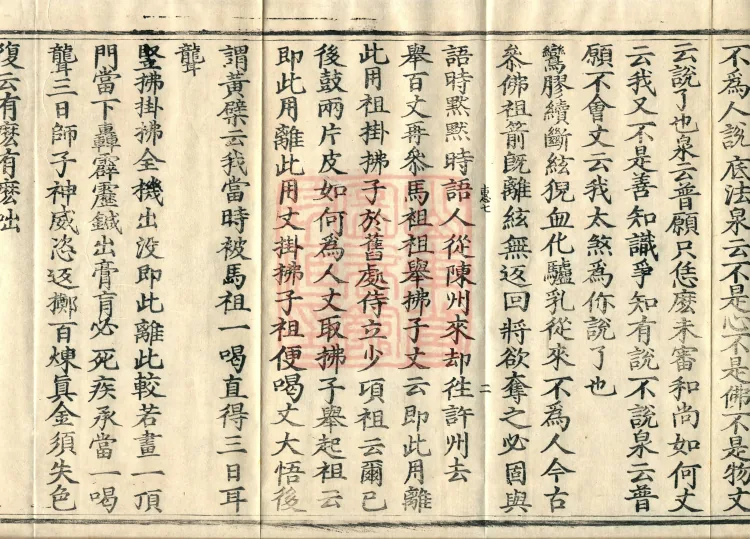 不為人說底法泉云不是心不是佛不是物丈
云說了也泉云普願只恁麽未審和尚如何丈
云我又不是善知識爭知有說不說泉云普
願不會丈云我太煞為你說了也
鸞膠續斷絃猊血化驢乳從來不為人今古
叅佛祖箭旣離絃無返回將欲奪之必固與
語時默默時語人從陳州來却徃許州去
舉百丈再叅馬祖祖舉拂子丈云即此用離
此用祖掛拂子於舊處侍立少頃祖云爾已
後鼓兩片皮如何為人丈取拂子舉起祖云
即此用離此用丈掛拂子祖便喝丈大悟後
謂黃檗云我當時被馬祖一喝直得三日耳
聾
竪拂掛拂全機出沒即此離此較若畫一頂
門當下轟霹靂鍼出膏肓必死疾承當一喝
聾三日師子神威恣返擲百煉真金須失色
復云有麽有麽咄